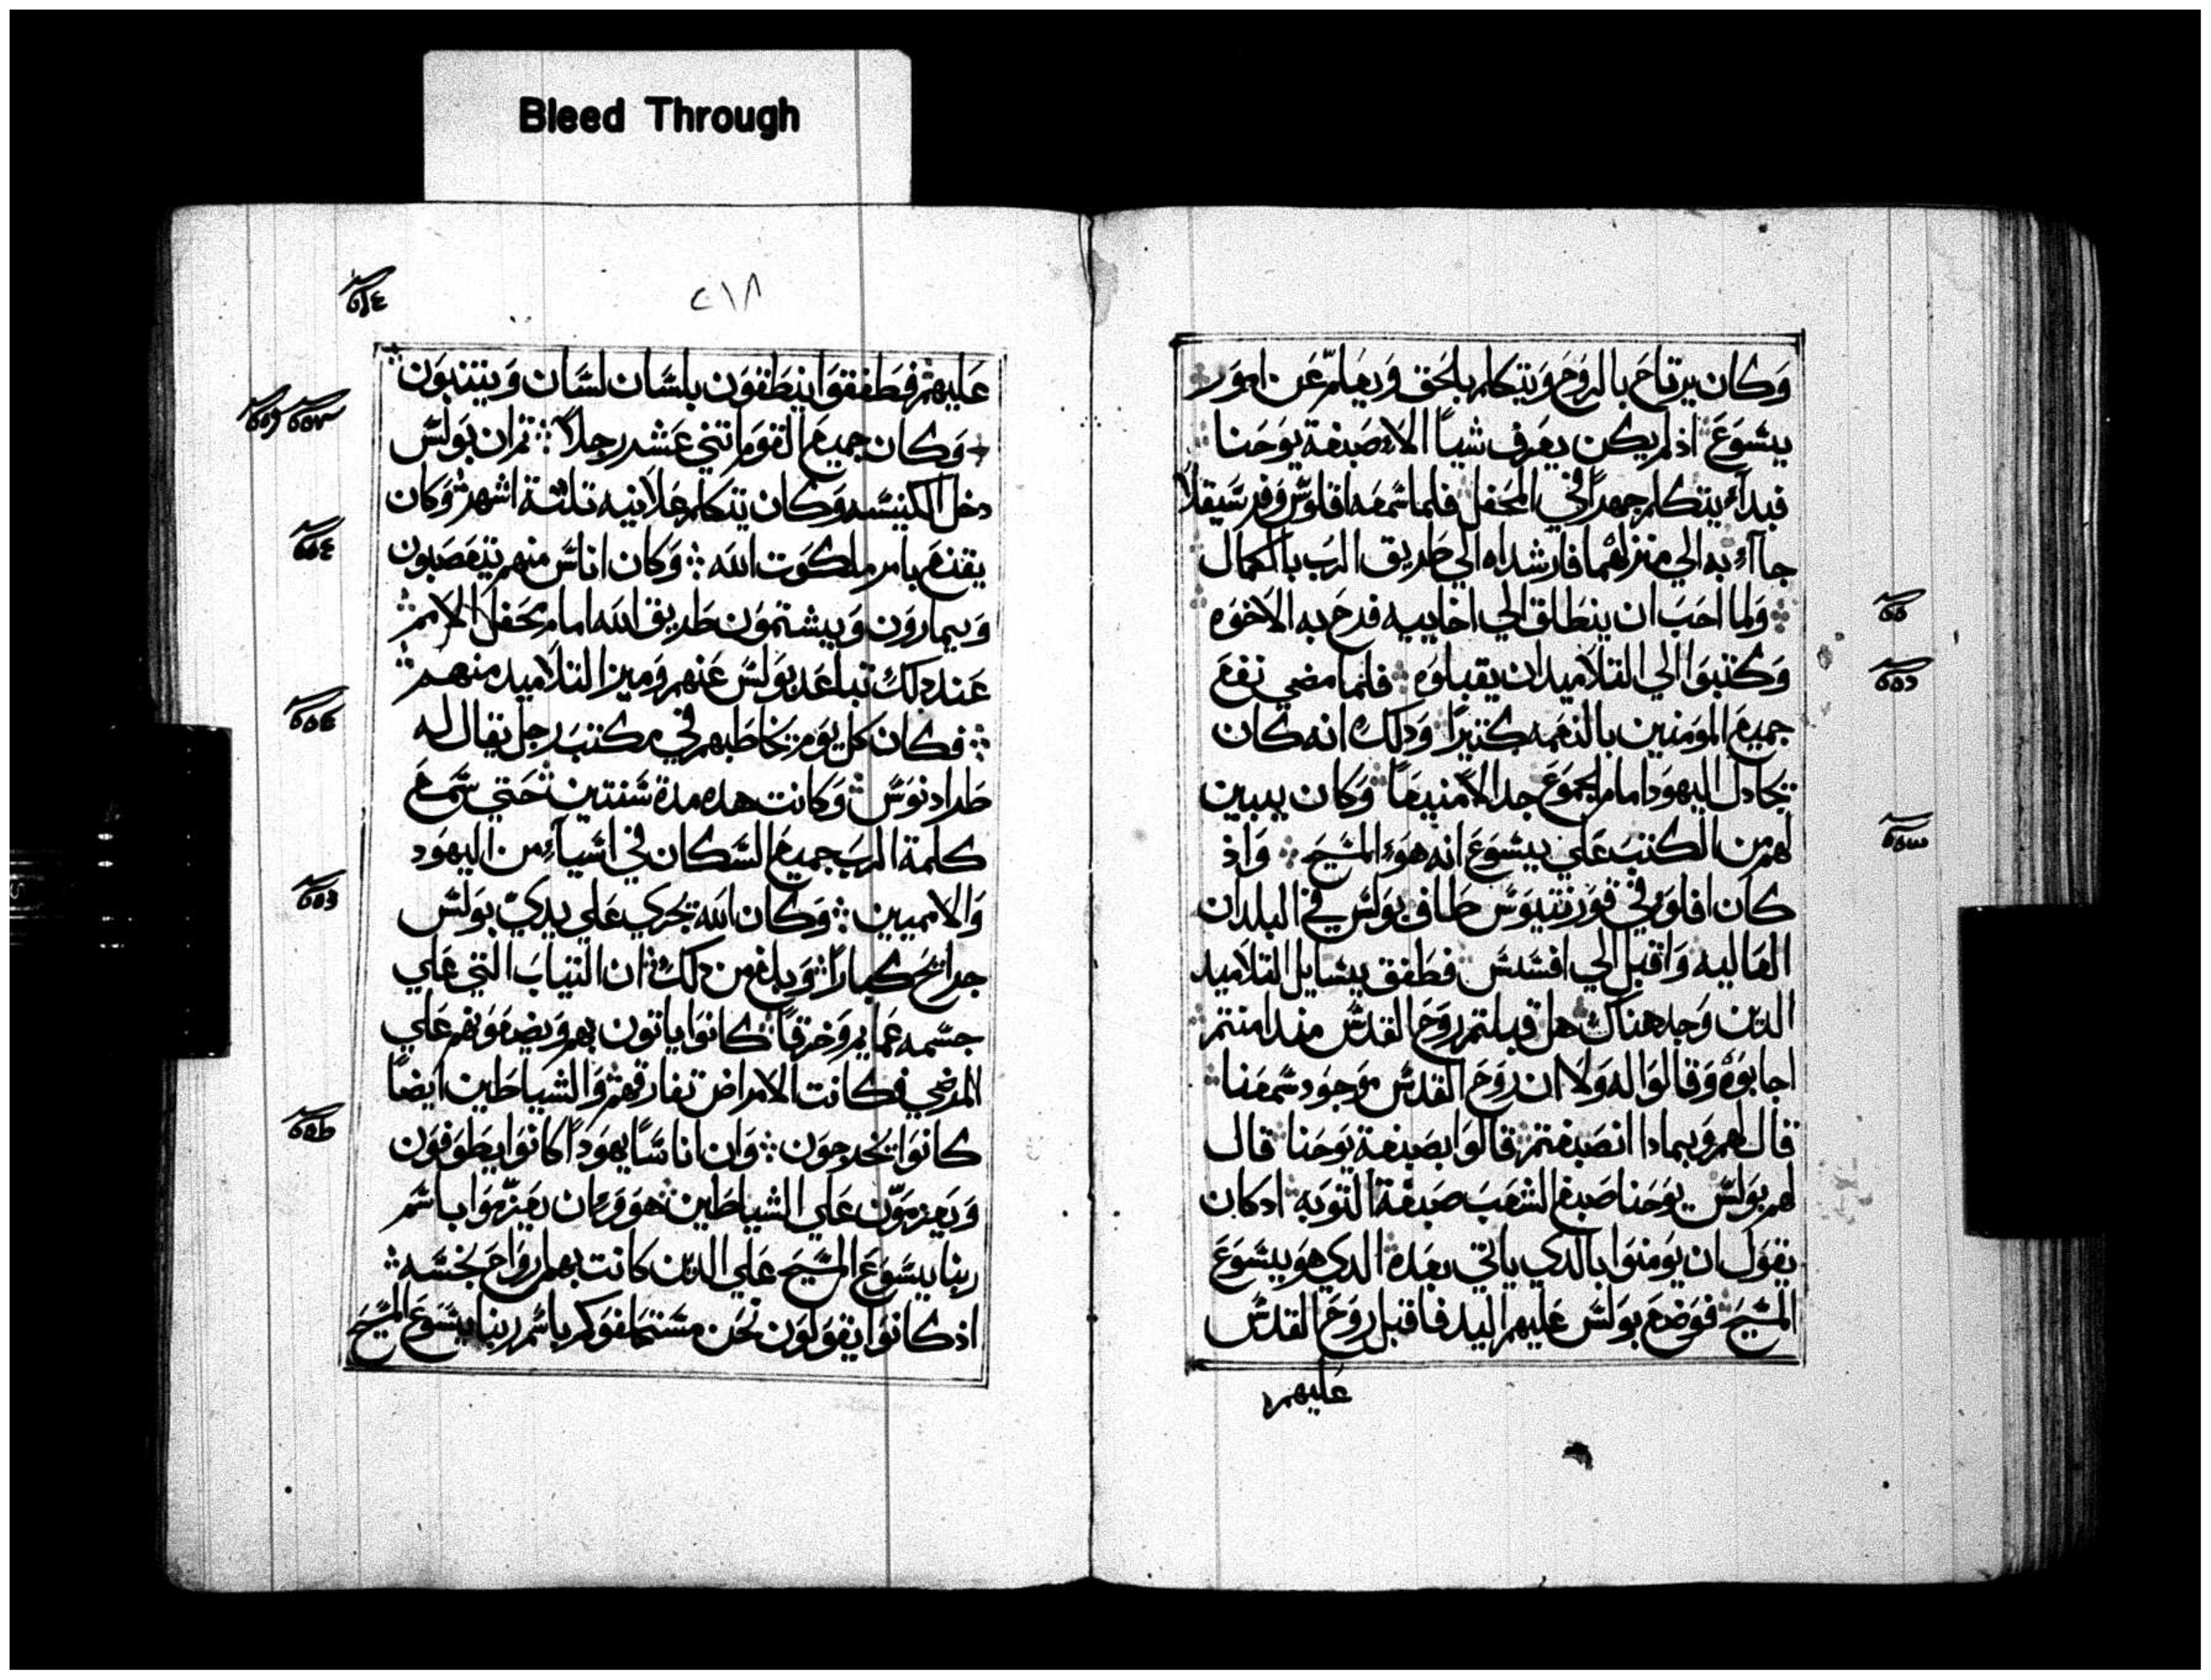 Bleed Through
وكان يرتاح بالروح ويتكلم بالحق ويعلم عن امور
يسوع اذ لم يكن يعرف شياً الا صبغة يوحنا
فبداء يتكلم جهراً في المحفل فلما سمعه اقلوس وفرسيقلا
جاآء به الي منزلهما فارشداه الي طريق الرب بالكمال
ولما احب ان ينطلق الي اخاييه فرح به الاخوه
وكتبوا الي التلاميد ان يقبلوه فلما مضي نفع
جميع المومنين بالنعمه كتيراً ودلك انه كان
يجادل اليهود امام الجموع جدالاً منيعاً وكان يبين
لهم من الكتب علي يسوع انه هوء المسيح واذ
كان افلو في قورنتيوس طاف بولس في البلدان
العاليه واقبل الي افسس فطفق يسايل التلاميد
الدين وجد هناك هل قبلتم روح القدس مند امنتم
اجابوه وقالوا له ولا ان روح القدس موجود سمعنا
قال لهم وبمادا انصبغتم قالوا بصبغة يوحنا قال
لهم بولس يوحنا صبغ الشعب صبغة التوبه ادكان
يقول ان يومنوا بالدي ياتي بعده الدي هو يسوع
المسيح فوضع بولس عليهم اليد فاقبل روح القدس
عليهم
٢١٨
عليهم فطفقوا ينطقون بلسان لسان ويتنبون
وكان جميع القوم اتني عشر رجلاً تم ان بولس
دخل الكنيسه وكان يتكلم علانيه تلتة اشهر وكان
يقنع بامر ملكوت الله وكان اناس منهم يتعصبون
ويمارون ويشتمون طريق الله امام محفل الامم
عند دلك تباعد بولس عنهم وميز التلاميد منهم
فكان كل يوم يخاطبهم في مكتب رجل يقال له
طرادنوس وكانت هده مدة سنتين حتي سمع
كلمة الرب جميع السكان في اسياء من اليهود
والامميين وكان الله يجري علي يدي بولس
جرايح كباراً وبلغ من دلك ان التياب التي علي
جسمه عمايم وخرقاً كانوا ياتون بهم ويضعونهم علي
المرضي فكانت الامراض تفارقهم والشياطين ايضاً
كانوا يخرجون وان اناساً يهوداً كانوا يطوفون
ويعزمون علي الشياطين هووءان يعزموا باسم
ربنا يسوع المسيح علي الدين كانت بهم ارواح نجسه
اذ كانوا يقولون نحن مستحلفوكم باسم ربنا يسوع المسيح